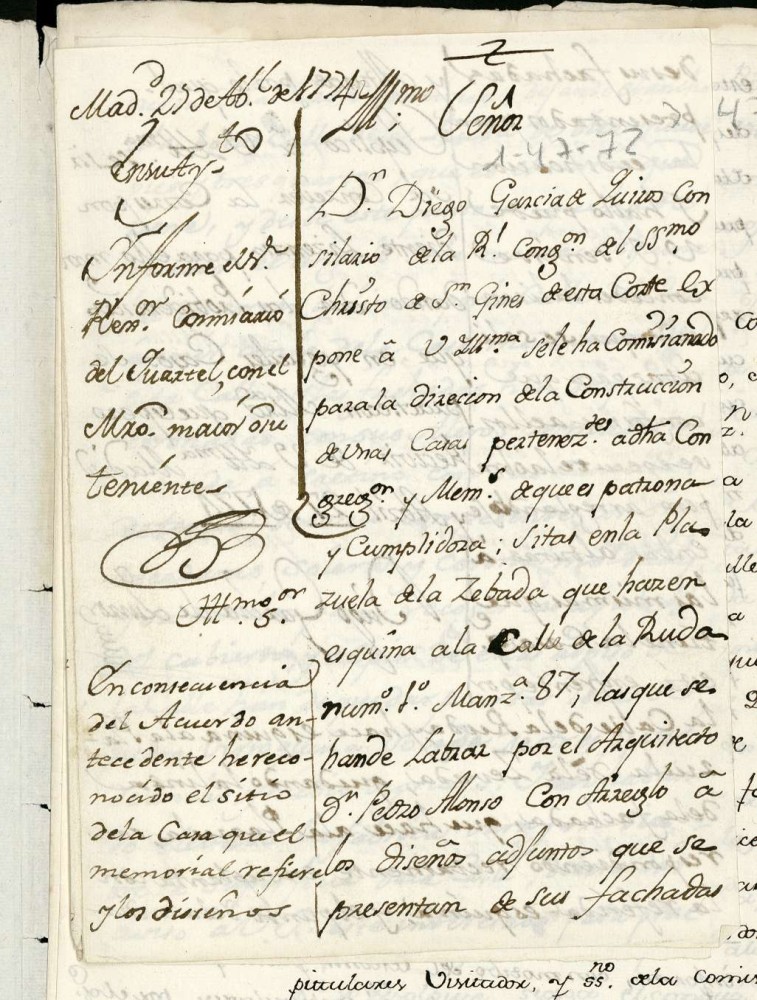 2
Mad.d 27 de Ab.l de 1774
en su Ay.to
Informe el S.r
Rexi.or Comisario
del Quartel, con el
Mro. maior ô su
teniente
Ill.mo S.or
En consecuencia
del Acuerdo an-
tecedente he reco-
nocido el sitio
dela Casa que el
memorial refiere
y los diseños
Ill.mo Señor
1-47-72
D.n Diego Garcia de Quiros Con
siliario dela R.l Cong.on del SS.mo
Christo de S.n Gines de esta Corte Ex
pone â V Ill.ma sele ha Comisionado
parala direccion dela Construccion
de unas Casas pertenez.tes a dha Con
greg.on y Mem.s de que es patrona
y Cumplidora; Sitas enla Pla
zuela dela Zebada que hazen
esquina ala Calle dela Ruda
num.o 1.o Manz.a 87, las que se
hande Labrar por el Arquitecto
d.n Pedro Alonso Con Arreglo â
los diseños adjuntos que se
presentan de sus fachadas
pitulares Visitador, y ss.no dela Comis